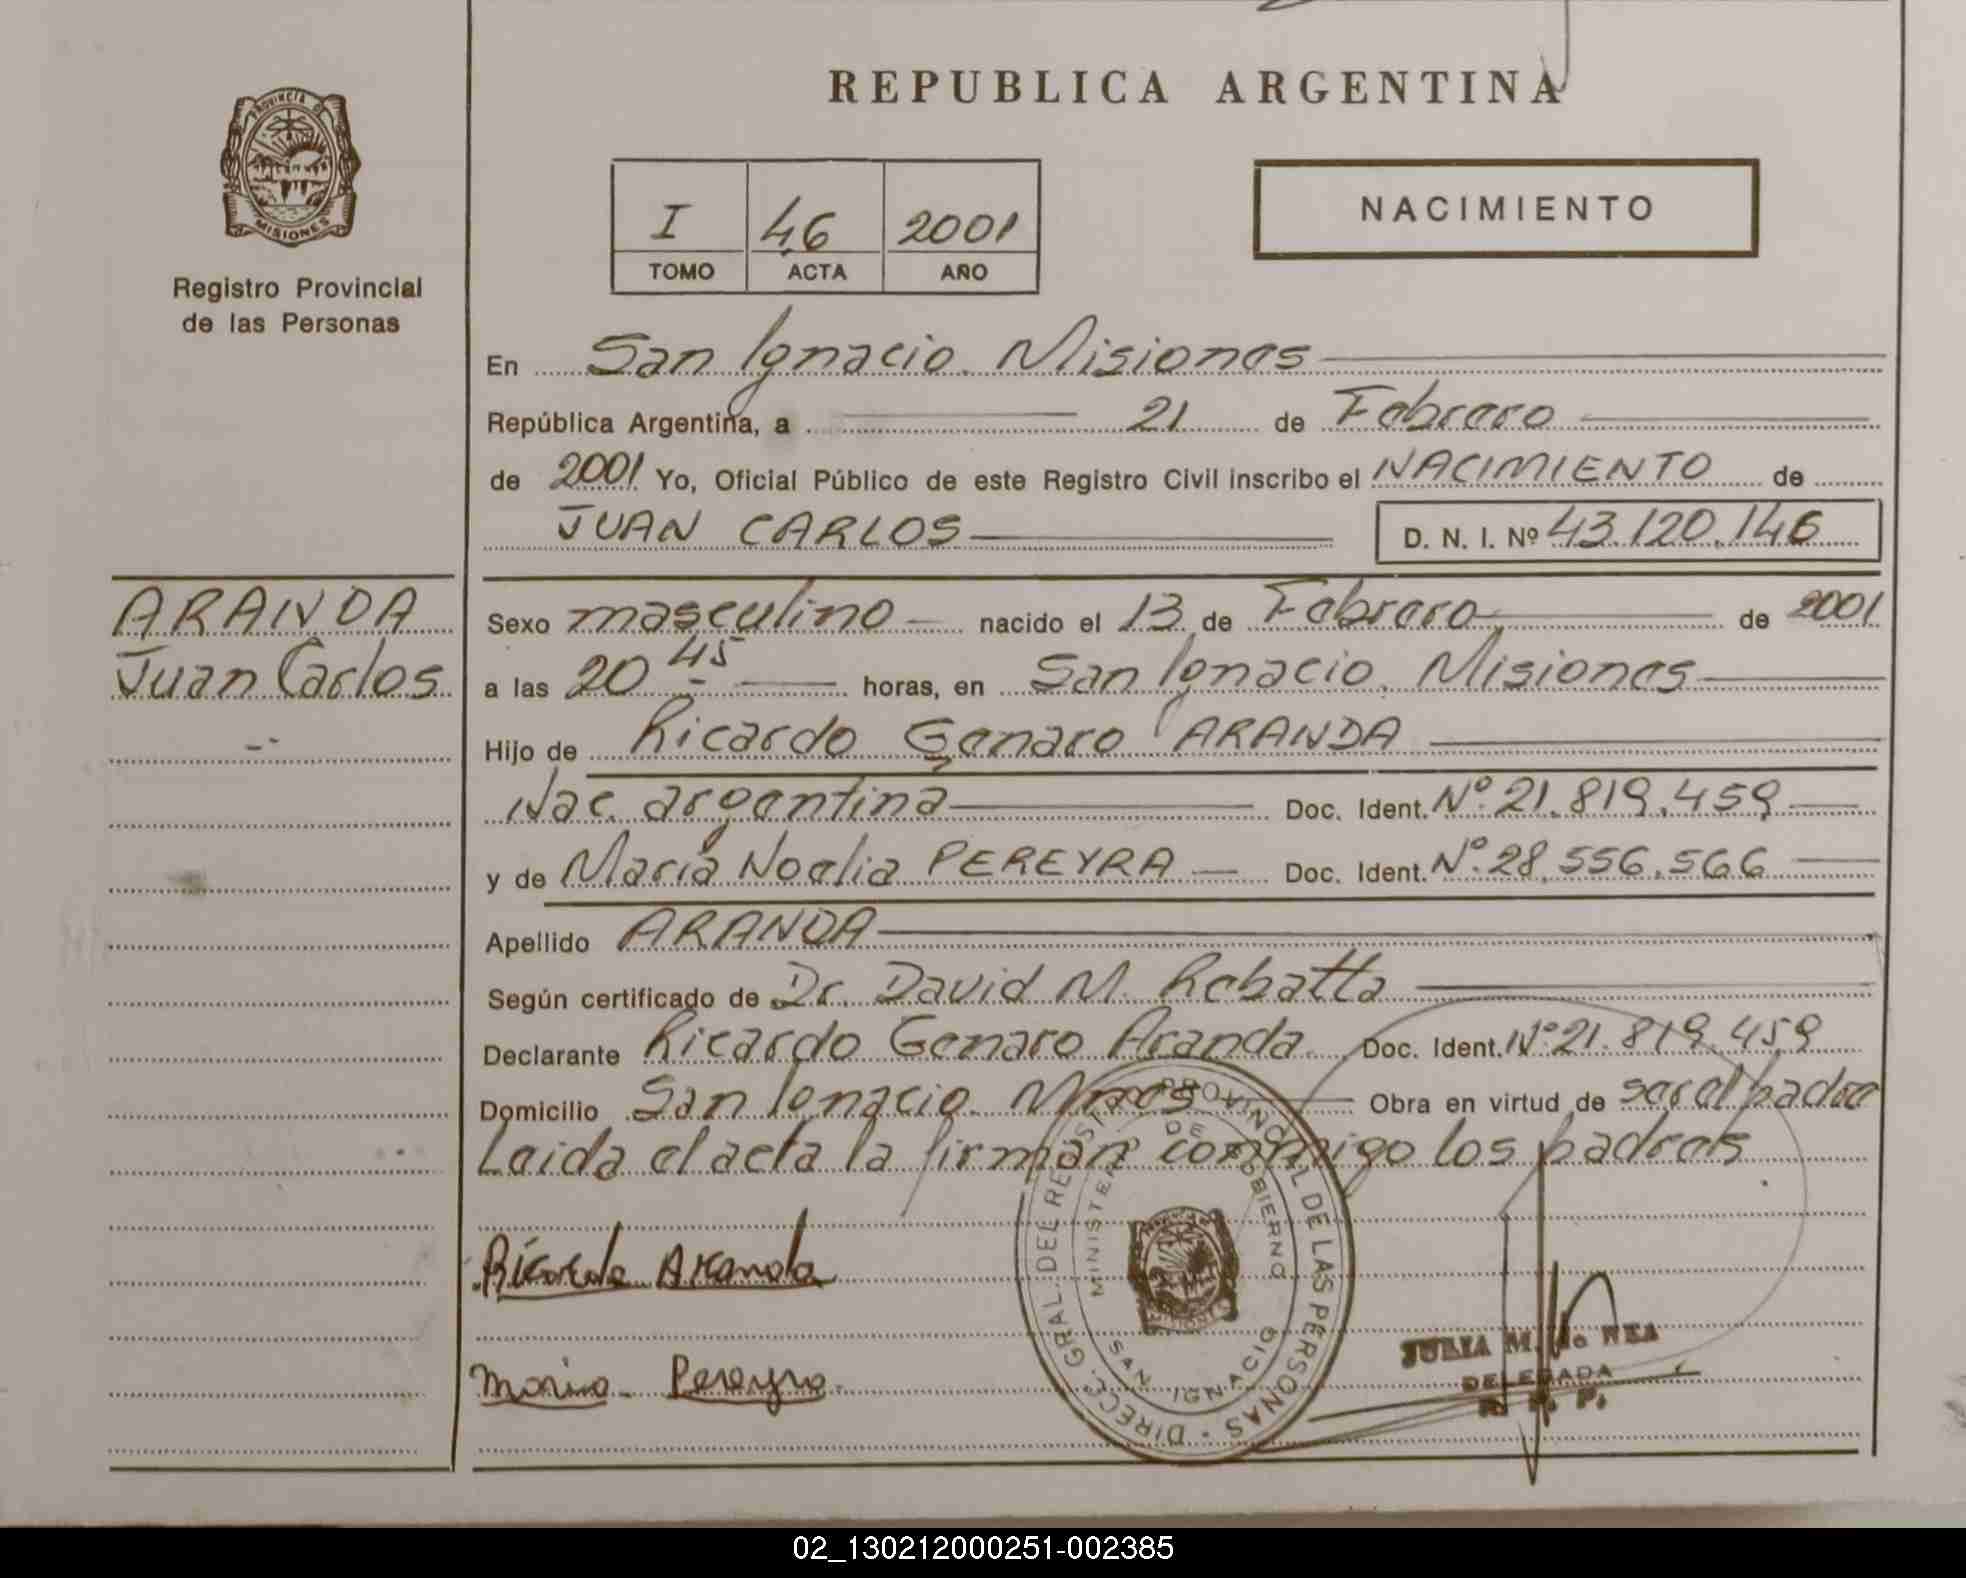 REPUBLICA ARGENTINA
PROVINCIA DE
MISIONES
Registro Provincial
de las Personas
I 46 2001
TOMO ACTA AÑO
NACIMIENTO
En San Ignacio. Misiones
República Argentina, a 21 de Febrero
de 2001 Yo, Oficial Público de este Registro Civil inscribo el NACIMIENTO de
JUAN CARLOS D. N. I. Nº 43.120.146
ARANDA
Juan Carlos
Sexo masculino nacido el 13 de Febrero de 2001
a las 20 45 horas, en San Ignacio. Misiones
Hijo de Ricardo Genaro ARANDA
Nac. argentina Doc. Ident. Nº 21.819.459
y de María Noelia PEREYRA Doc. Ident. Nº 28.556.566
Apellido ARANDA
Según certificado de Dr. David M. Rebatta
Declarante Ricardo Genaro Aranda Doc. Ident. Nº 21.819.459
Domicilio San Ignacio. Mnes Obra en virtud de ser el padre
Leida el acta la firman conmigo los padres
Ricardo Aranda
Maria Pereyra
DIRECC. GRAL. DEL REGISTRO PROVINCIAL DE LAS PERSONAS
MINISTERIO DE GOBIERNO
SAN IGNACIO
JULIA M. de NEA
DELEGADA
R. P. P.
02_130212000251-002385